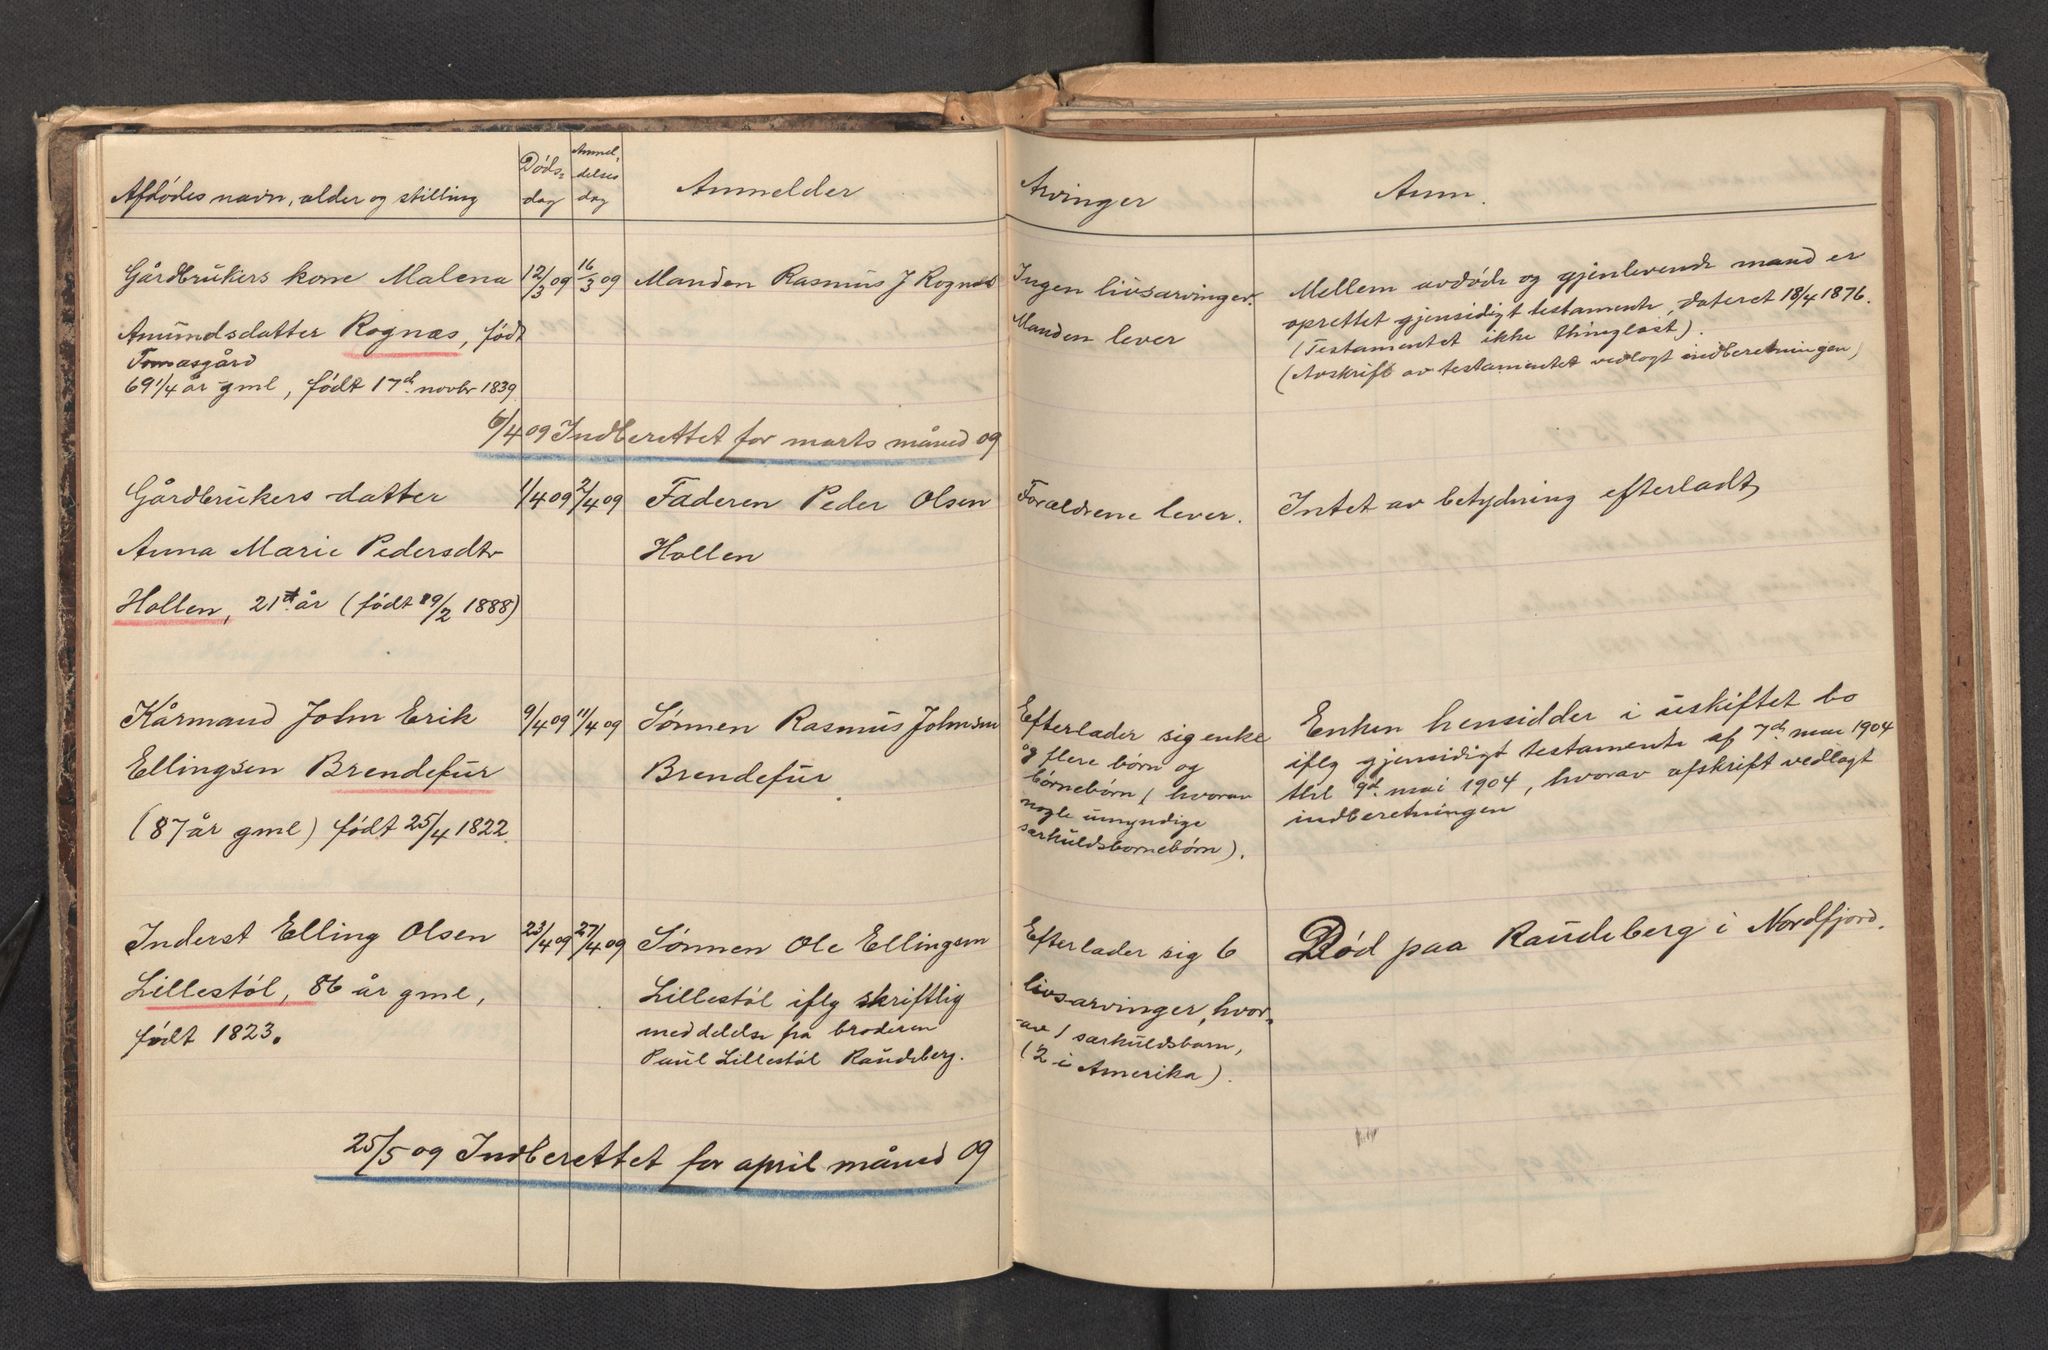 Afdødes navn, alder og stilling
Døds-
dag
Anmel-
delses
dag
Anmelder
Arvinger
Anm.
Gårdbrukers kone Malena
Amundsdatter Rognæs, født
Tomasgård
69 1/4 år gml, født 17d novbr 1839
12/3 09
16/3 09
Manden Rasmus J Rognæs
Ingen livsarvinger.
Manden lever
Mellem avdøde og gjenlevende mand er
oprettet gjensidigt testamente, dateret 18/4 1876.
(Testamentet ikke thinglæst).
(Avskrift av testamentet vedlagt indberetningen)
6/4 09 Indberettet for marts måned 09
Gårdbrukers datter
Anna Marie Pedersdtr
Hollen, 21 år (født 19/2 1888)
1/4 09
2/4 09
Faderen Peder Olsen
Hollen
Forældrene lever.
Intet av betydning efterladt
Kårmand John Erik
Ellingsen Brendefur
(87 år gml) født 25/4 1822.
9/4 09
11/4 09
Sønnen Rasmus Johnsen
Brendefur
Efterlader sig enke
og flere børn og
børnebørn (hvorav
nogle umyndige
særkuldsbørnebørn).
Enken hensidder i uskiftet bo
iflg gjensidigt testamente af 7d mai 1904
thl 9d mai 1904, hvorav afskrift vedlagt
indberetningen
Inderst Elling Olsen
Lillestøl, 86 år gml,
født 1823.
23/4 09
27/4 09
Sønnen Ole Ellingsen
Lillestøl iflg skriftlig
meddelelse fra broderen
Paul Lillestøl Raudeberg.
Efterlader sig 6
livsarvinger, hvor-
av 1 særkuldsbarn,
(2 i Amerika).
Død paa Raudeberg i Nordfjord.
25/5 09 Indberettet for april måned 09